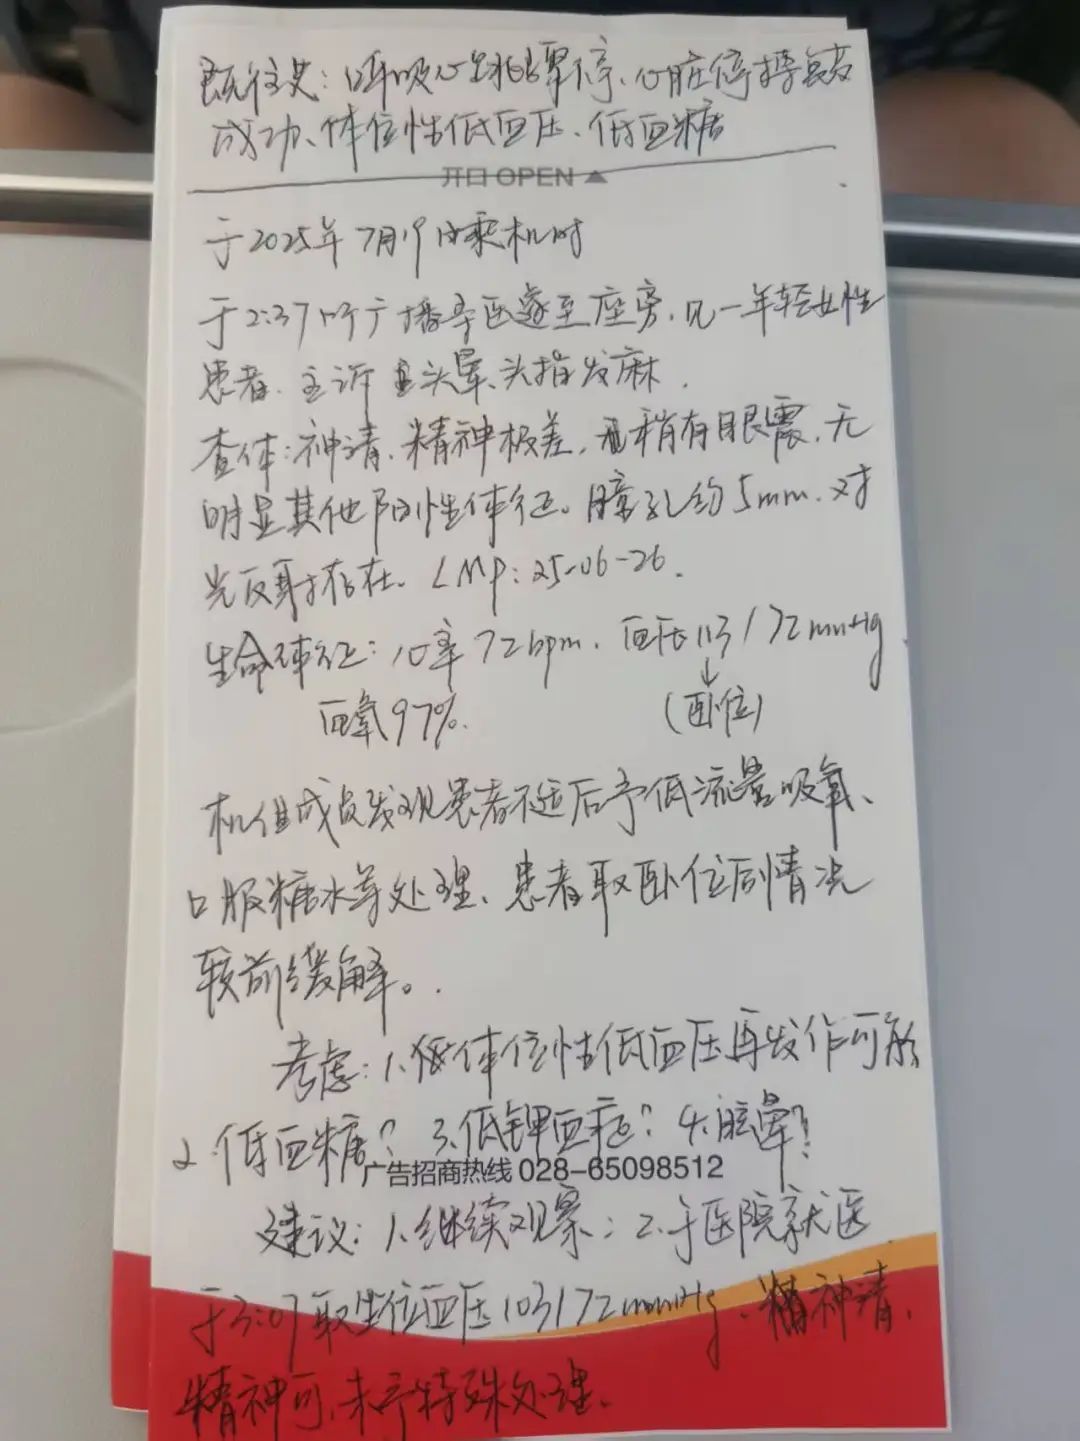 既往史：呼吸心跳骤停、心脏停搏复苏
成功、体位性低血压、低血糖
开口 OPEN ▲
于2025年7月19日乘机时
于2:37听广播寻医遂至座旁，见一年轻女性
患者，主诉头晕、头指发麻.
查体：神清，精神极差，稍有眼震，无
明显其他阳性体征。瞳孔约5mm，对
光反射存在。LMP：25-06-26.
生命体征：心率72bpm，血压113/72mmHg
血氧97%. ↓
(卧位)
机组成员发现患者不适后予低流量吸氧、
口服糖水等处理，患者取卧位后情况
较前缓解。
考虑：1.体位性低血压再发作可能
2.低血糖？3.低钾血症？4.眩晕？
广告招商热线 028-65098512
建议：1.继续观察；2.于医院就医
于3:07取坐位血压103/72mmHg，神清，
精神可，未予特殊处理.